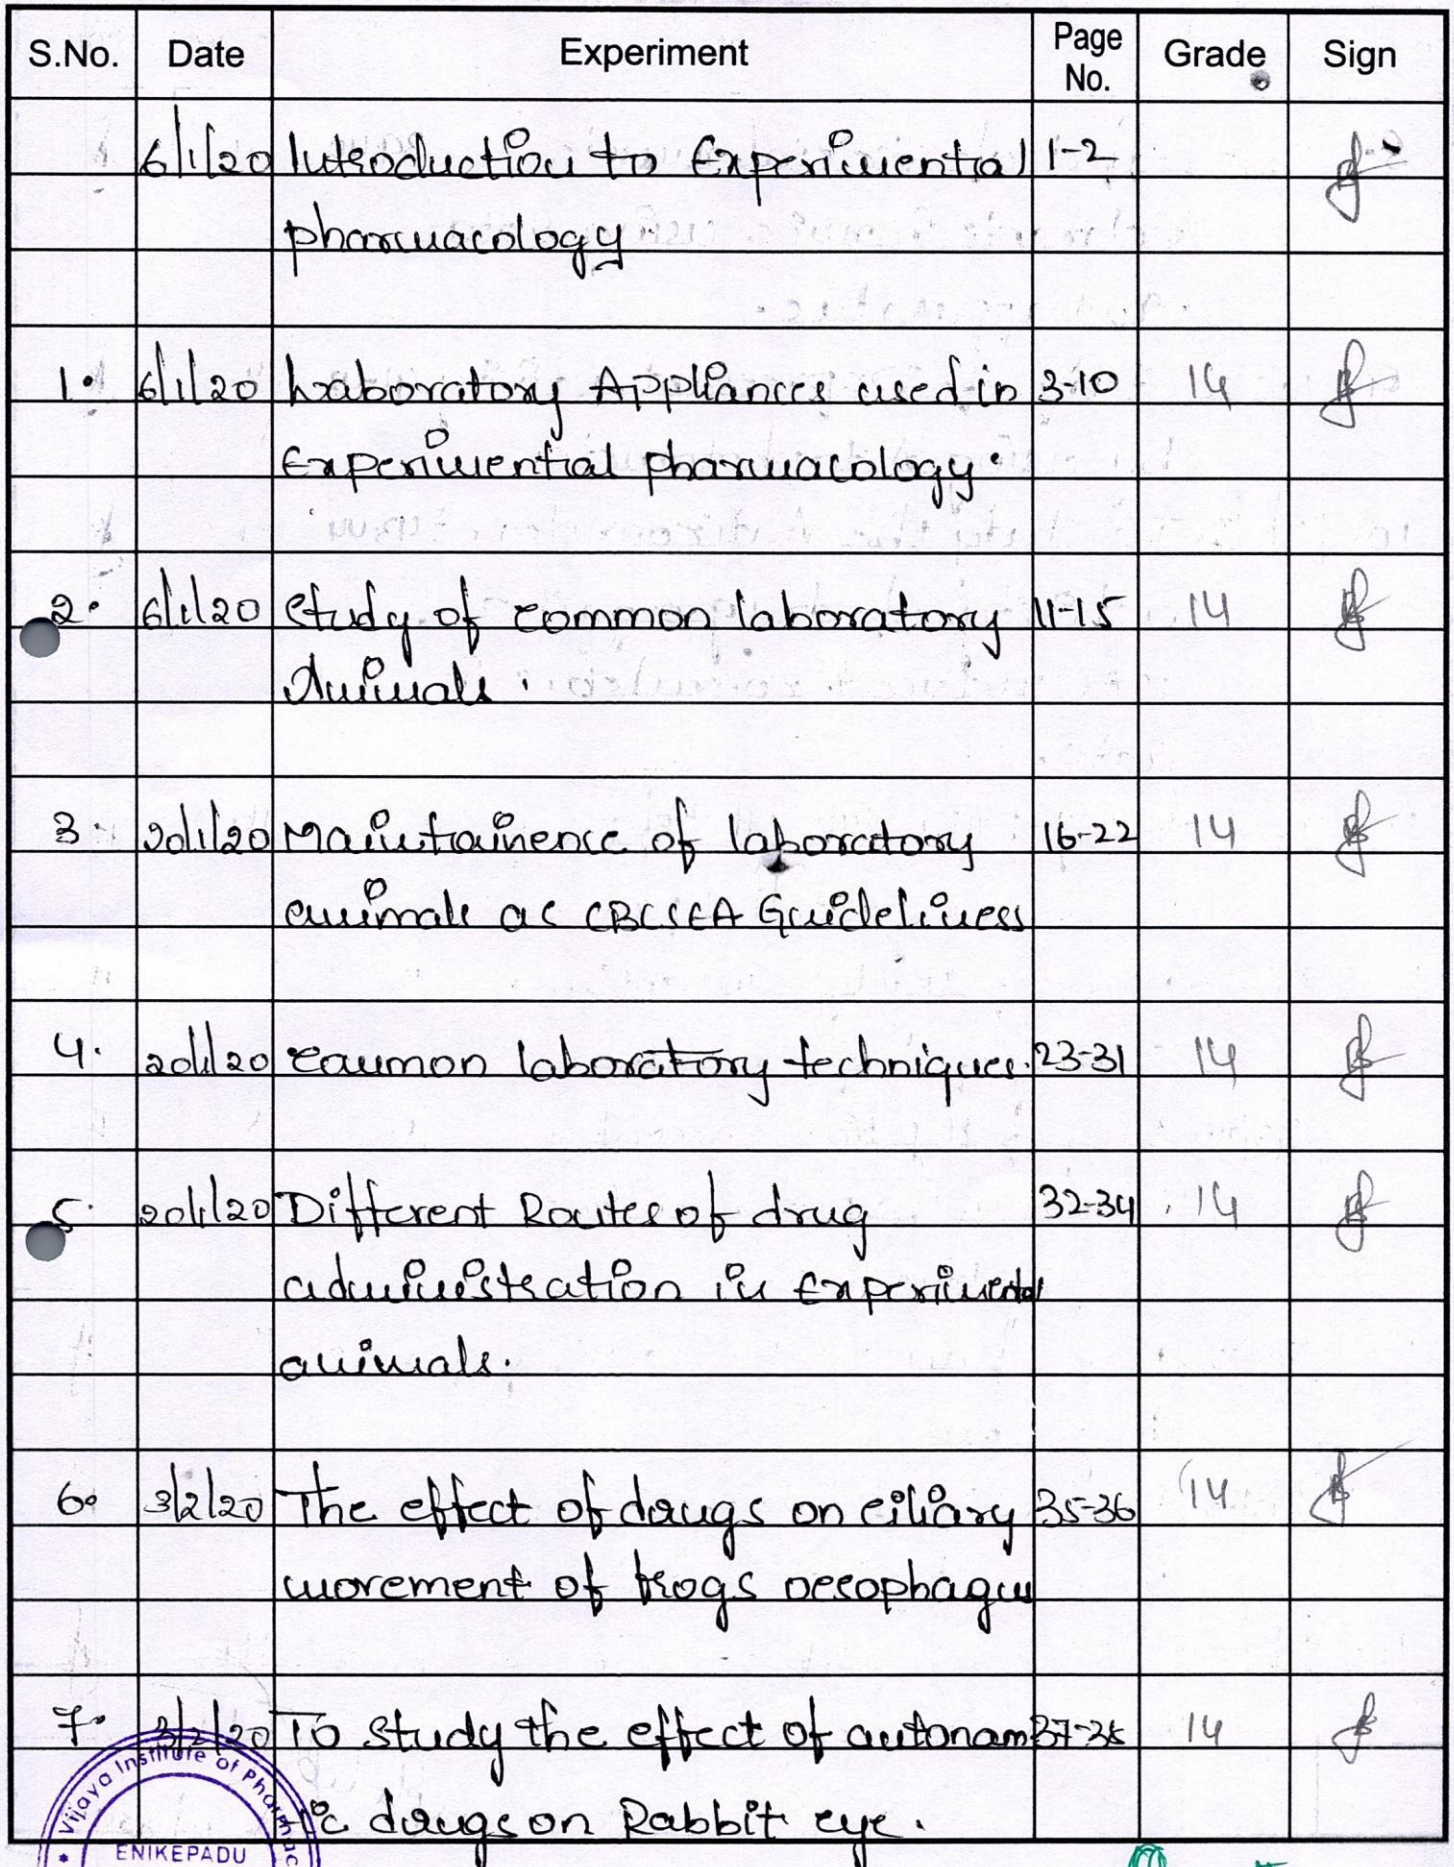 S.No. Date Experiment Page No. Grade Sign
6/1/20 Introduction to Experimental 1-2
pharmacology
1. 6/1/20 Laboratory Appliances used in 3-10 14
Experimental pharmacology.
2. 6/1/20 Study of common laboratory 11-15 14
Animals.
3. 20/1/20 Maintainence of laboratory 16-22 14
animals as CBCSEA Guideliness
4. 20/1/20 Caumon laboratory techniques. 23-31 14
5. 20/1/20 Different Routes of drug 32-34 14
administration in Experimental
animals.
6. 3/2/20 The effect of drugs on ciliary 35-36 14
movement of frogs oesophagus
7. 3/2/20 To study the effect of autonam 14
-ic drugs on Rabbit eye.
Vijaya Institute of Pharmac
ENIKEPADU